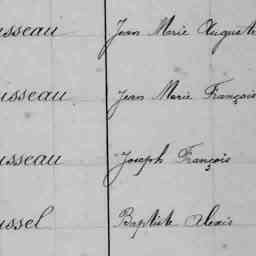 usseau Jean Marie Auguste
usseau Jean Marie François
usseau Joseph François
ussel Baptiste Alexis